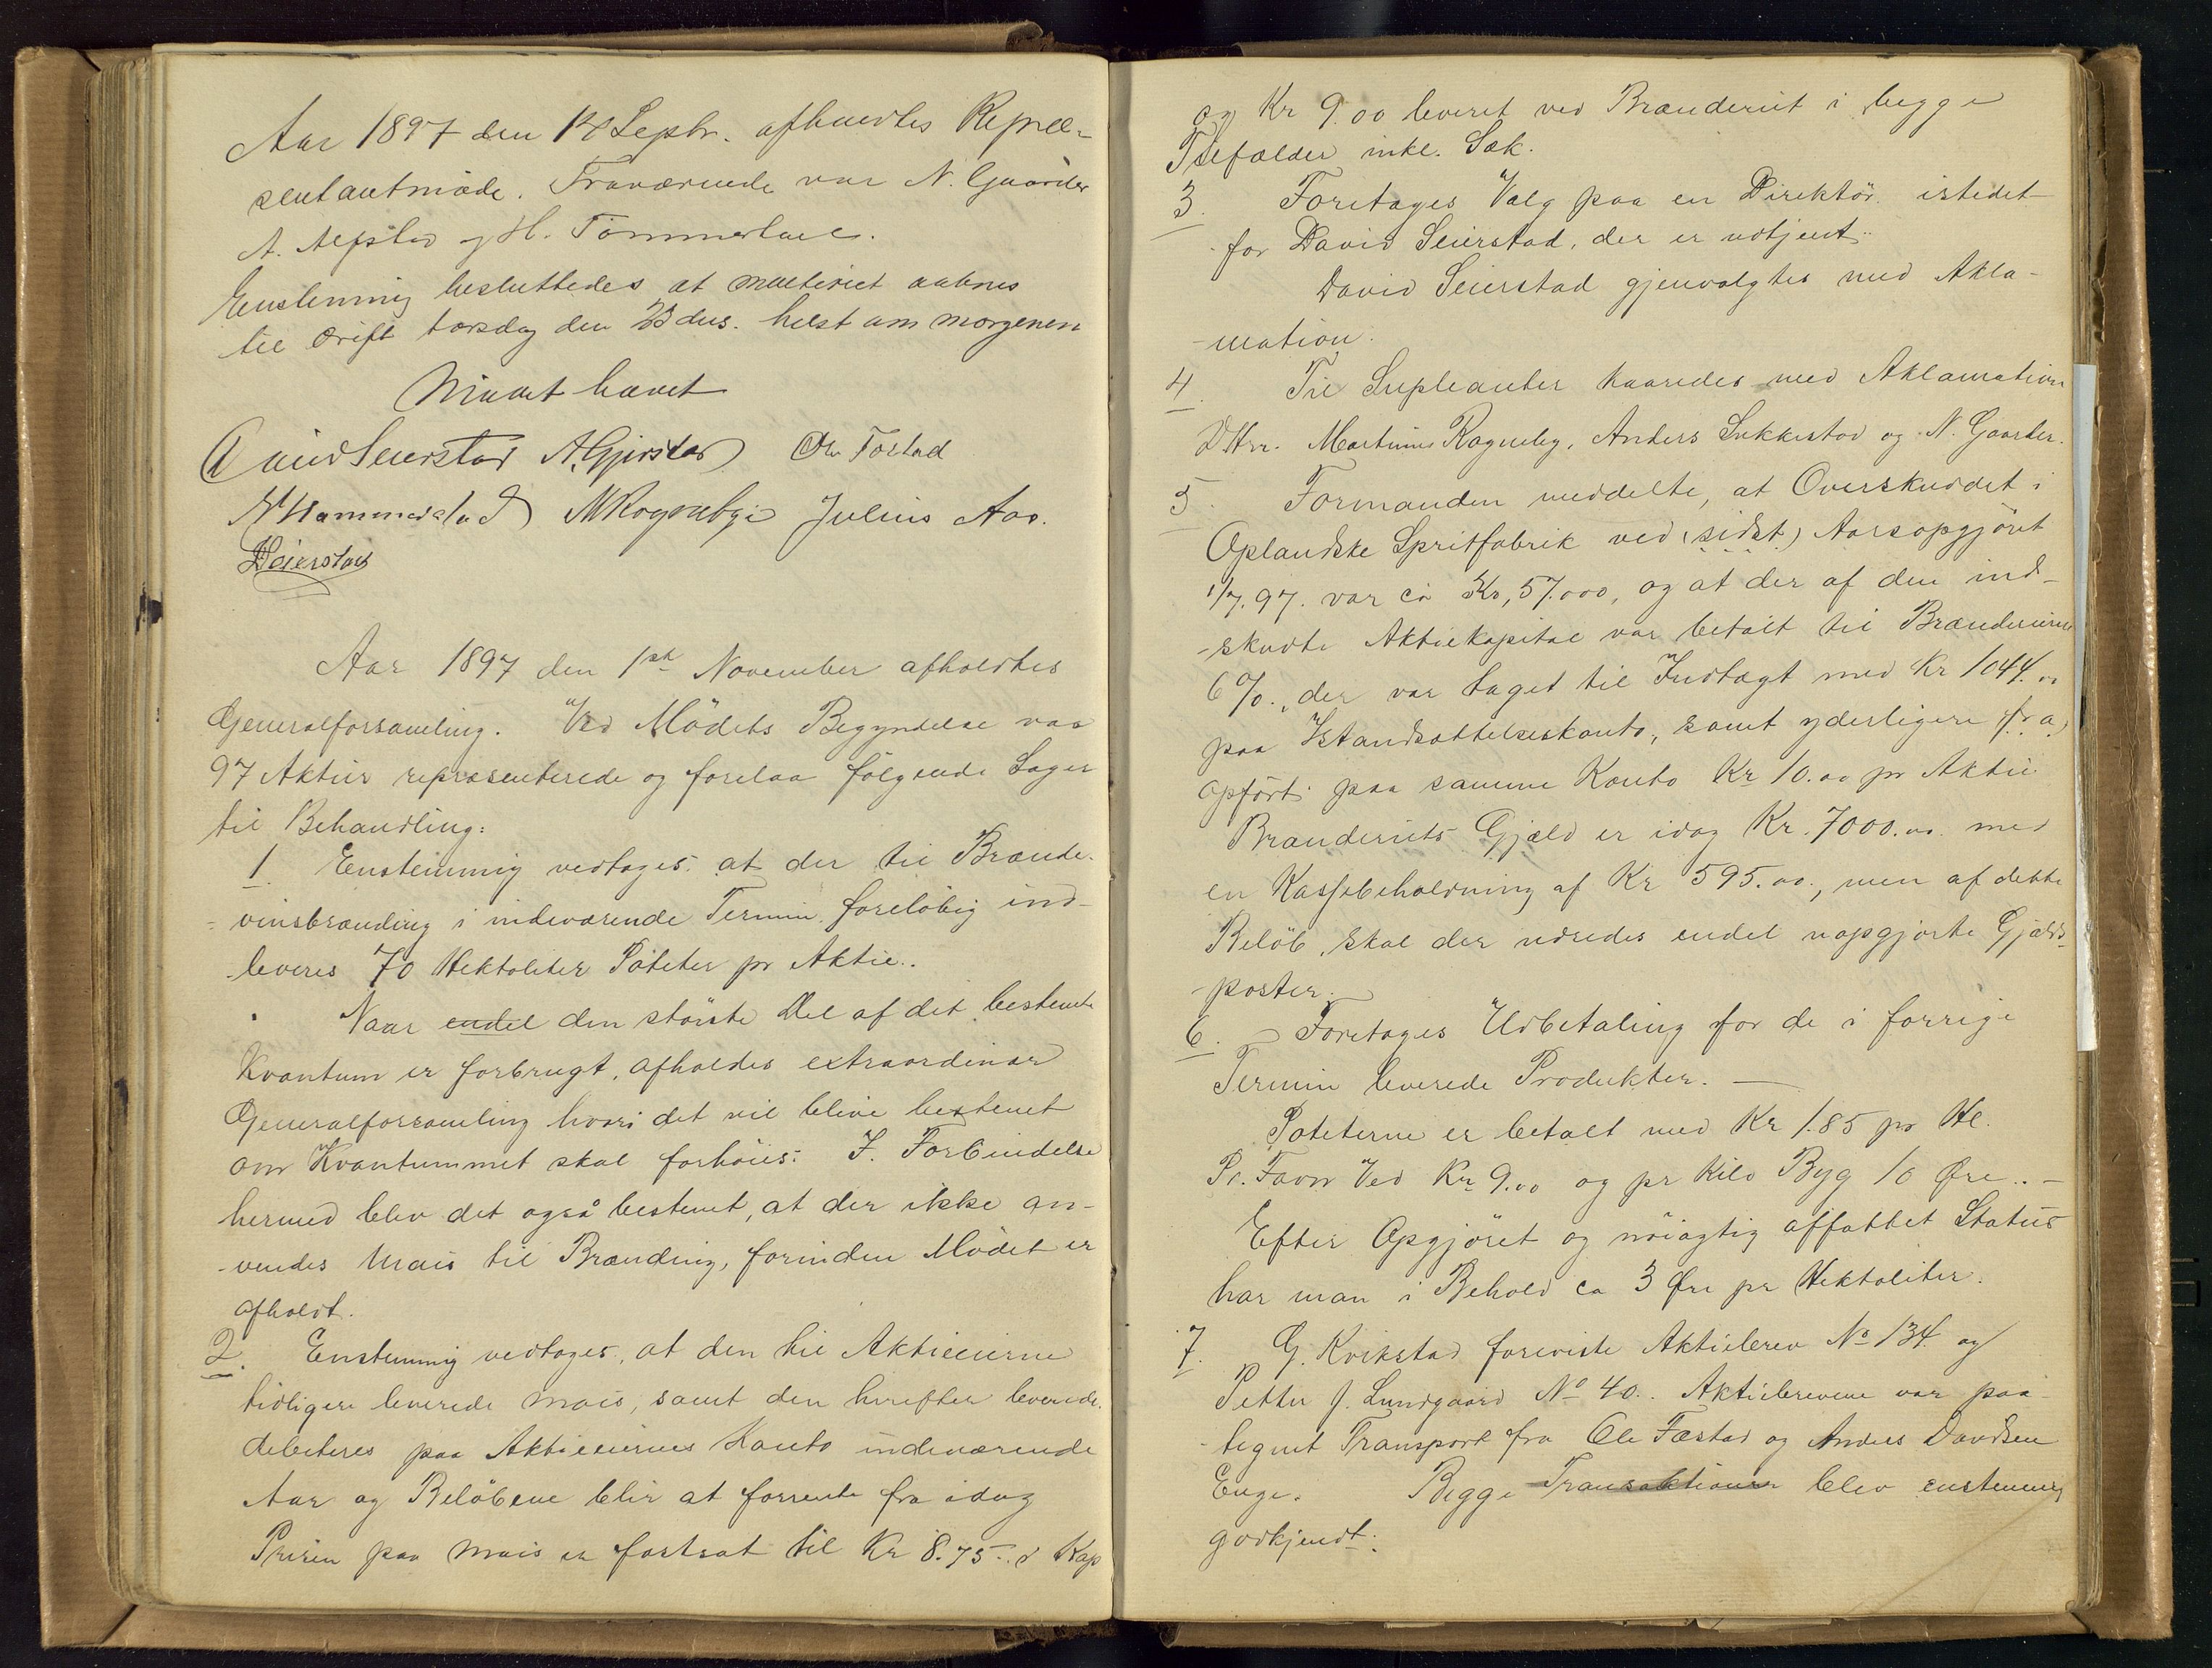 Aar 1897 den 14 Septr. afholdtes Repræ-
sentantmöde. Fraværende var N. Gaarder
A. Alfstad og H. Tömmerhol.
Enstemmig besluttedes at malteriet aabnes
til Drift torsdag den 23 dns. helst om morgenen
Mödet hævet
David Seierstad A. Gjørstad Ole Fostad
N Hammerstad M Rognebye Julius Aas.
Seierstad
Aar 1897 den 1ste November afholdtes
Generalforsamling. Ved Mödets Begyndelse var
97 Aktier repræsenterede og forelaa fölgende Sager
til Behandling:
1. Enstemmig vedtoges at der til Brænde-
vinsbrænding i indeværende Termin forelöbig ind-
leveres 70 Hektoliter Poteter pr Aktie.
Naar endel den störste Del af det bestemte
Kvantum er forbrugt, afholdes extraordinær
Generalforsamling hvori det vil blive bestemt
om Kvantummet skal forhöies. I Forbindelse
hermed blev det også bestemt, at der ikke an-
vendes Mais til Brænding, forinden Mödet er
afholdt.
2. Enstemmig vedtoges, at den til Aktieeierne
tidligere leverede mais, samt den herefter leverede
debiteres paa Aktieeiernes Konto indeværende
Aar og Belöbene blir at forrente fra idag
Prisen paa Mais er fortsat til Kr 8.75 i Kap
og Kr 9.00 leveret ved Brænderiet i begge
Tilfælder inkl. Sæk.
3. Foretoges Valg paa en Direktör istedet
for David Seierstad, der er udtjent.
David Seierstad gjenvalgtes med Akla-
mation.
4. Til Supleanter kaaredes med Aklamation
DHrr. Martinus Rognebye, Anders Sukkestad og N. Gaarder.
5. Formanden meddelte, at Overskuddet i
Oplandske Spritfabrik ved (sidst) Aarsopgjöret
1/7.97. var ca Kr, 57.000, og at der af den ind-
skudte Aktiekapital var betalt til Brænderierne
6%., der var taget til Indtægt med Kr 1044.00
paa Istandsættelseskonto, samt yderligere (fra)
opfört paa samme Konto Kr 10.00 pr Aktie
Brænderiets Gjæld er idag Kr. 7000.00. med
en Kassebeholdning af Kr 595.00., men af dette
Belöb, skal der udredes endel uopgjorte Gjælds-
poster.
6. Foretoges Udbetaling for de i forrige
Termin leverede Produkter. —
Poteterne er betalt med Kr 1.85 pr Hl.
Pr. Favn Ved Kr 9.00 og pr Kilo Byg 10 Øre.. —
Efter Opgjöret og nöiagtig affattet Status
har man i Behold ca 3 Øre pr Hektoliter.
7. G. Kvikstad foreviste Aktiebrev No 134 og
Petter J. Lundgaard No 40. Aktiebrevene var paa-
tegnet Transport fra Ole Fæstad og Anders Davidsen
Enge. Begge Transaktioner blev enstemmig
godkjendt.